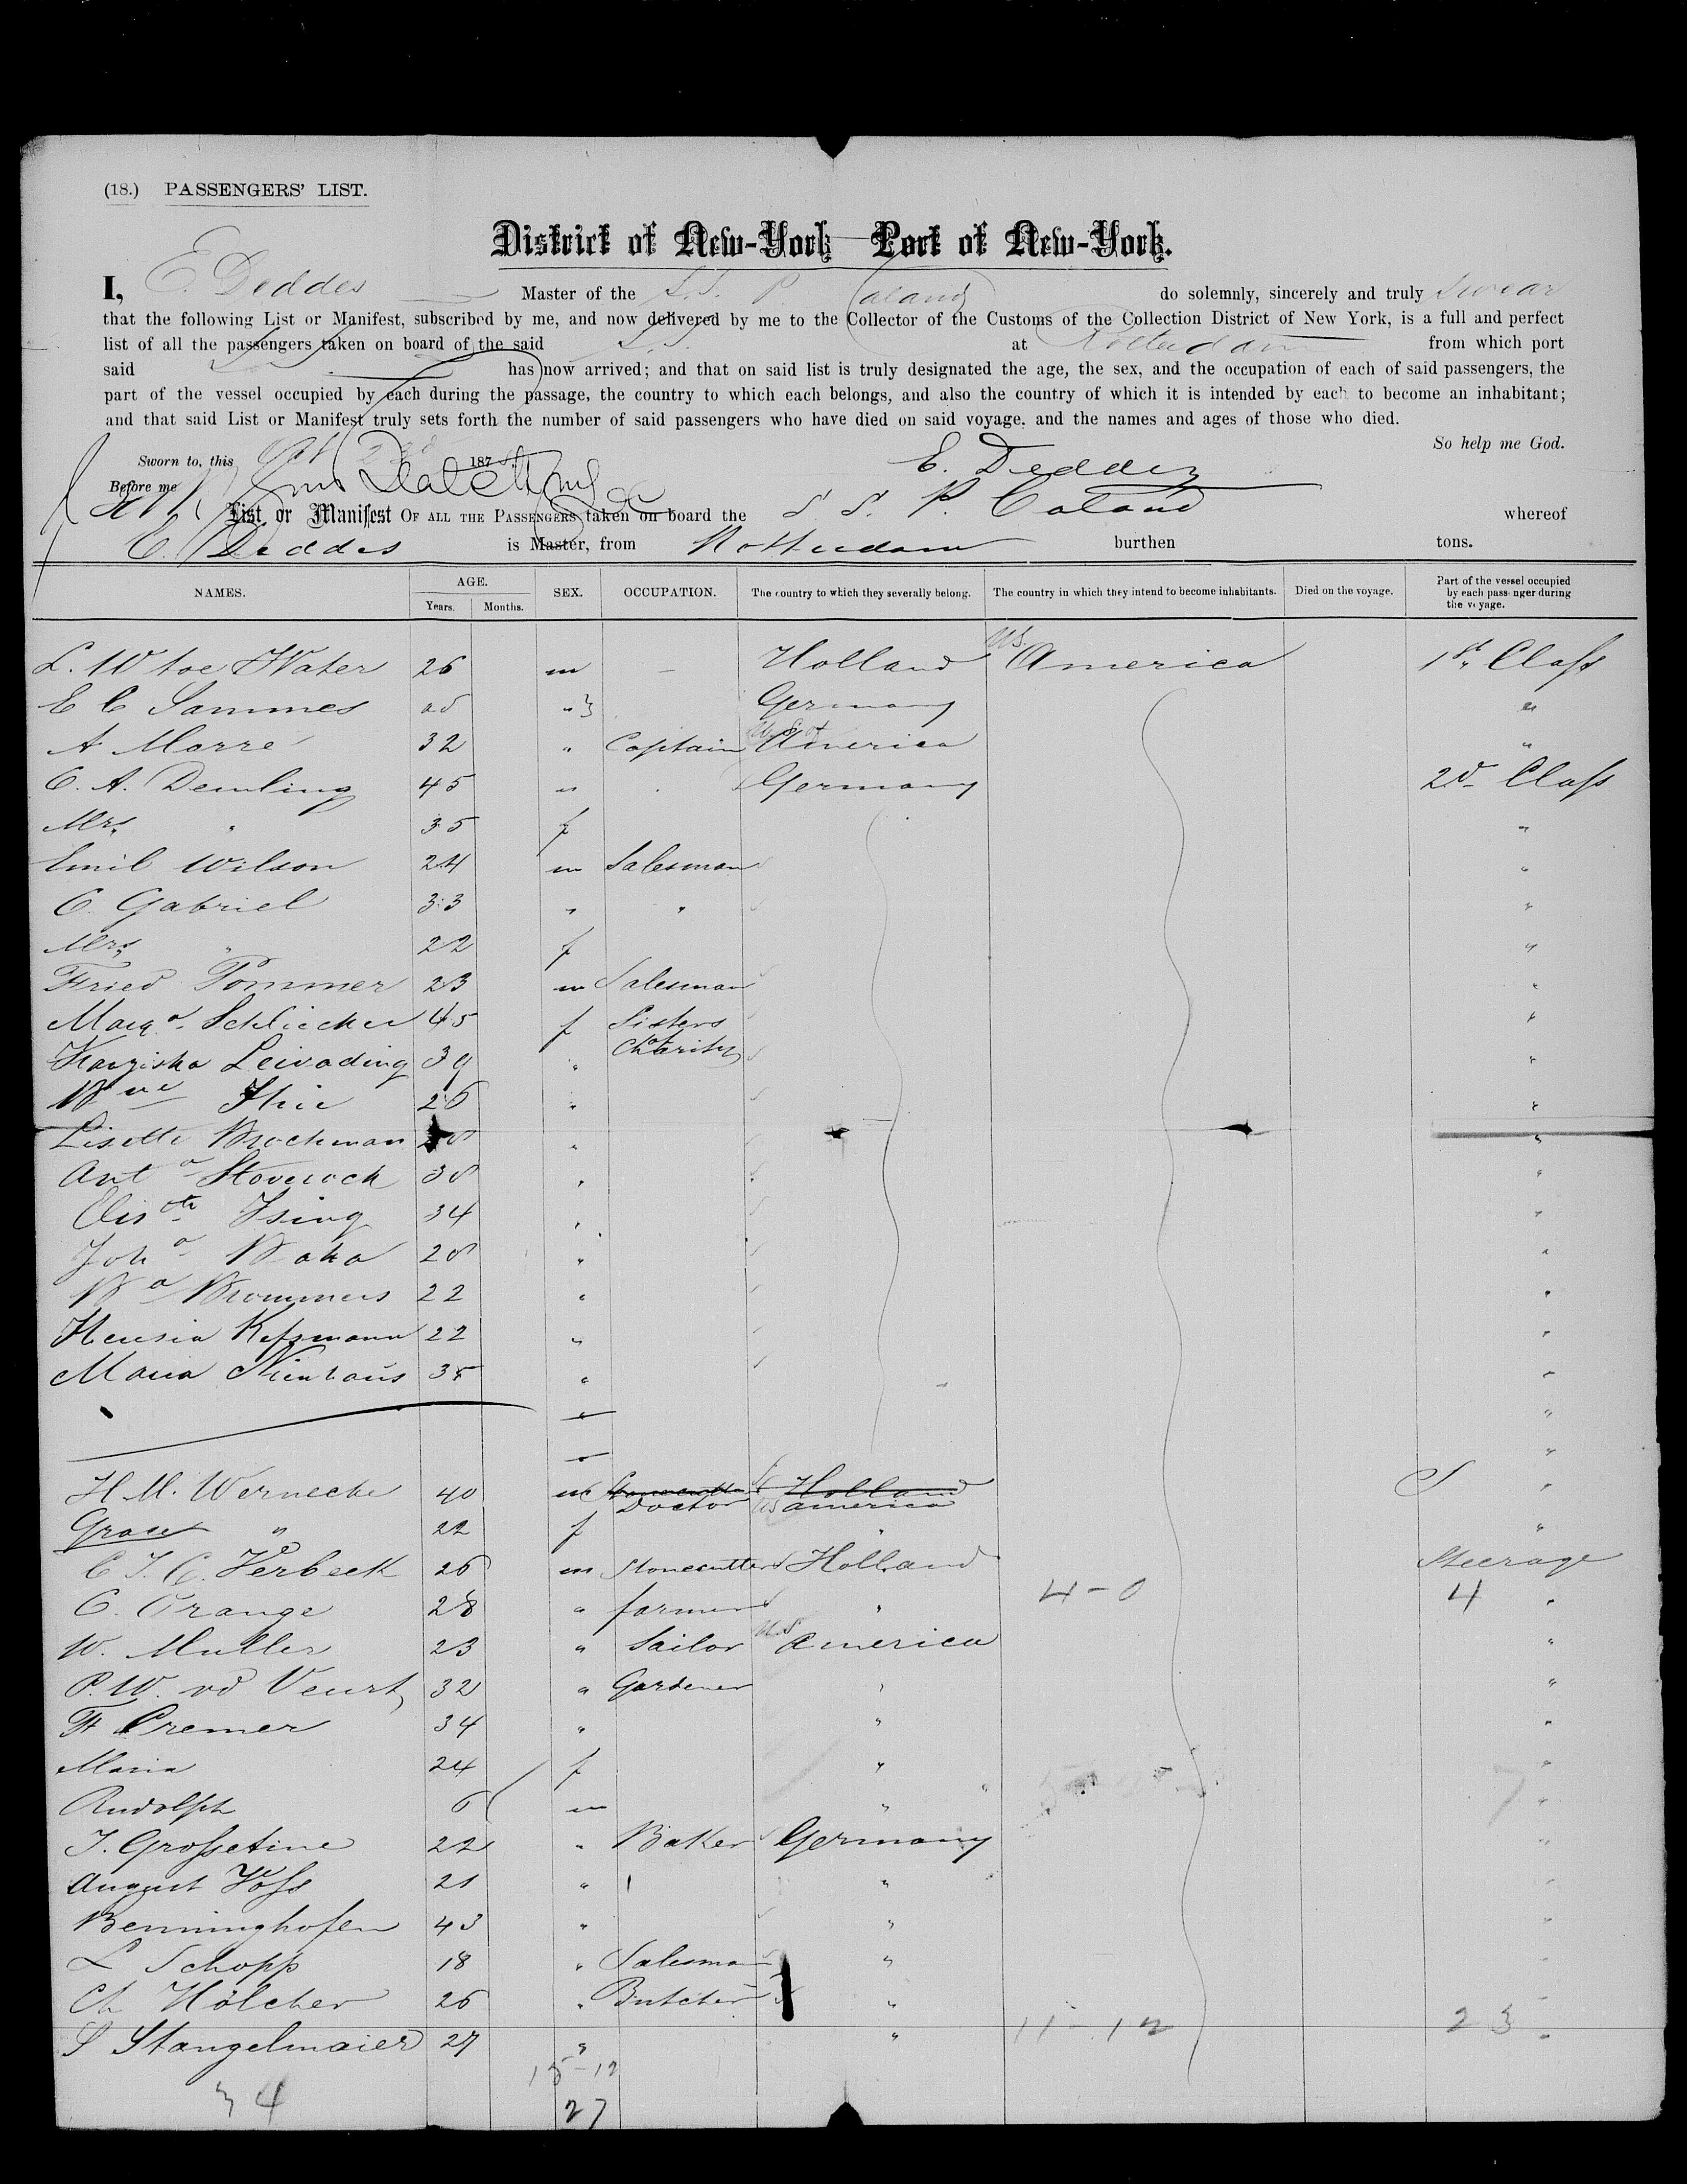 (18.) PASSENGERS' LIST.
District of New-York Port of New-York.
I, E. Deddes Master of the S.S. P. Caland do solemnly, sincerely and truly swear
that the following List or Manifest, subscribed by me, and now delivered by me to the Collector of the Customs of the Collection District of New York, is a full and perfect
list of all the passengers taken on board of the said S.S. at Rotterdam from which port
said has now arrived; and that on said list is truly designated the age, the sex, and the occupation of each of said passengers, the
part of the vessel occupied by each during the passage, the country to which each belongs, and also the country of which it is intended by each to become an inhabitant;
and that said List or Manifest truly sets forth the number of said passengers who have died on said voyage, and the names and ages of those who died.
So help me God.
Sworn to, this 187 E. Deddes
Before me
List or Manifest OF ALL THE PASSENGERS taken on board the S. S. P. Caland whereof
E. Deddes is Master, from Rotterdam burthen tons.
NAMES. AGE. Years. Months. SEX. OCCUPATION. The country to which they severally belong. The country in which they intend to become inhabitants. Died on the voyage. Part of the vessel occupied by each passenger during the voyage.
L. W toe Water 26 m — Holland U.S. America 1st Class
E C Sammes ad " Germany "
A Morré 32 " Captain U.S. of America "
C. A. Demling 45 " Germany 2d Class
Mrs " 35 f "
Emil Wilson 24 m Salesman "
C. Gabriel 33 " " "
Mrs " 22 f "
Fried Pommer 23 m Salesman "
Marga Schliecker 45 f Sisters "
of Charity
Leivading 39 " "
26 " "
Lisette Brockman " "
Anta 38 " "
Elisth Ising 34 " "
Joha 28 " "
Ba Brommers 22 " "
22 " "
Maria Nienhaus 35 " "
H. M. Wernecke 40 m Stonecutter Doctor Holland US America "
Grace " 22 f " "
C. J. C. Verbeek 26 m Stonecutter Holland Steerage
C. Orange 28 " farmer " 4-0 4 "
W. Muller 23 " Sailor U.S America "
P. W. vd Veurt 32 " Gardener " "
F Cremer 34 " " "
Maria 24 f " "
Rudolph 6 m " 7 "
J. Grossetine 22 " Baker Germany "
August Voss 21 " " "
Benninghofen 43 " " "
L Schopp 18 " Salesman " "
Ch Hölcher 26 " Butcher " "
S Stangelmaier 27 " " 11-12 23 "
15-12
34 27